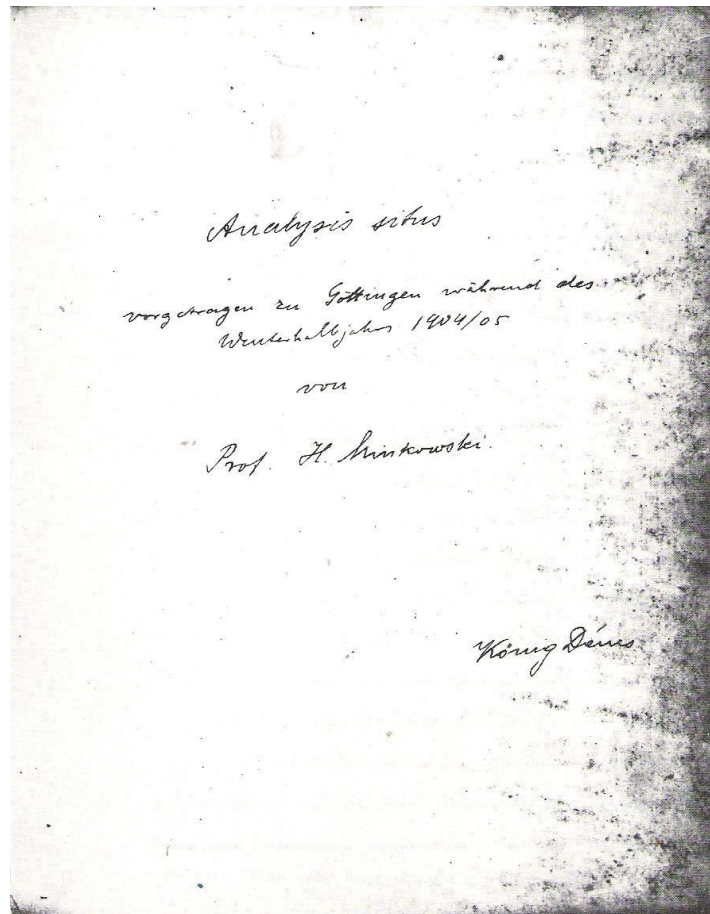 Analysis situs
vorgetragen zu Göttingen während des
Winterhalbjahrs 1904/05
von
Prof. H. Minkowski.
König Dénes